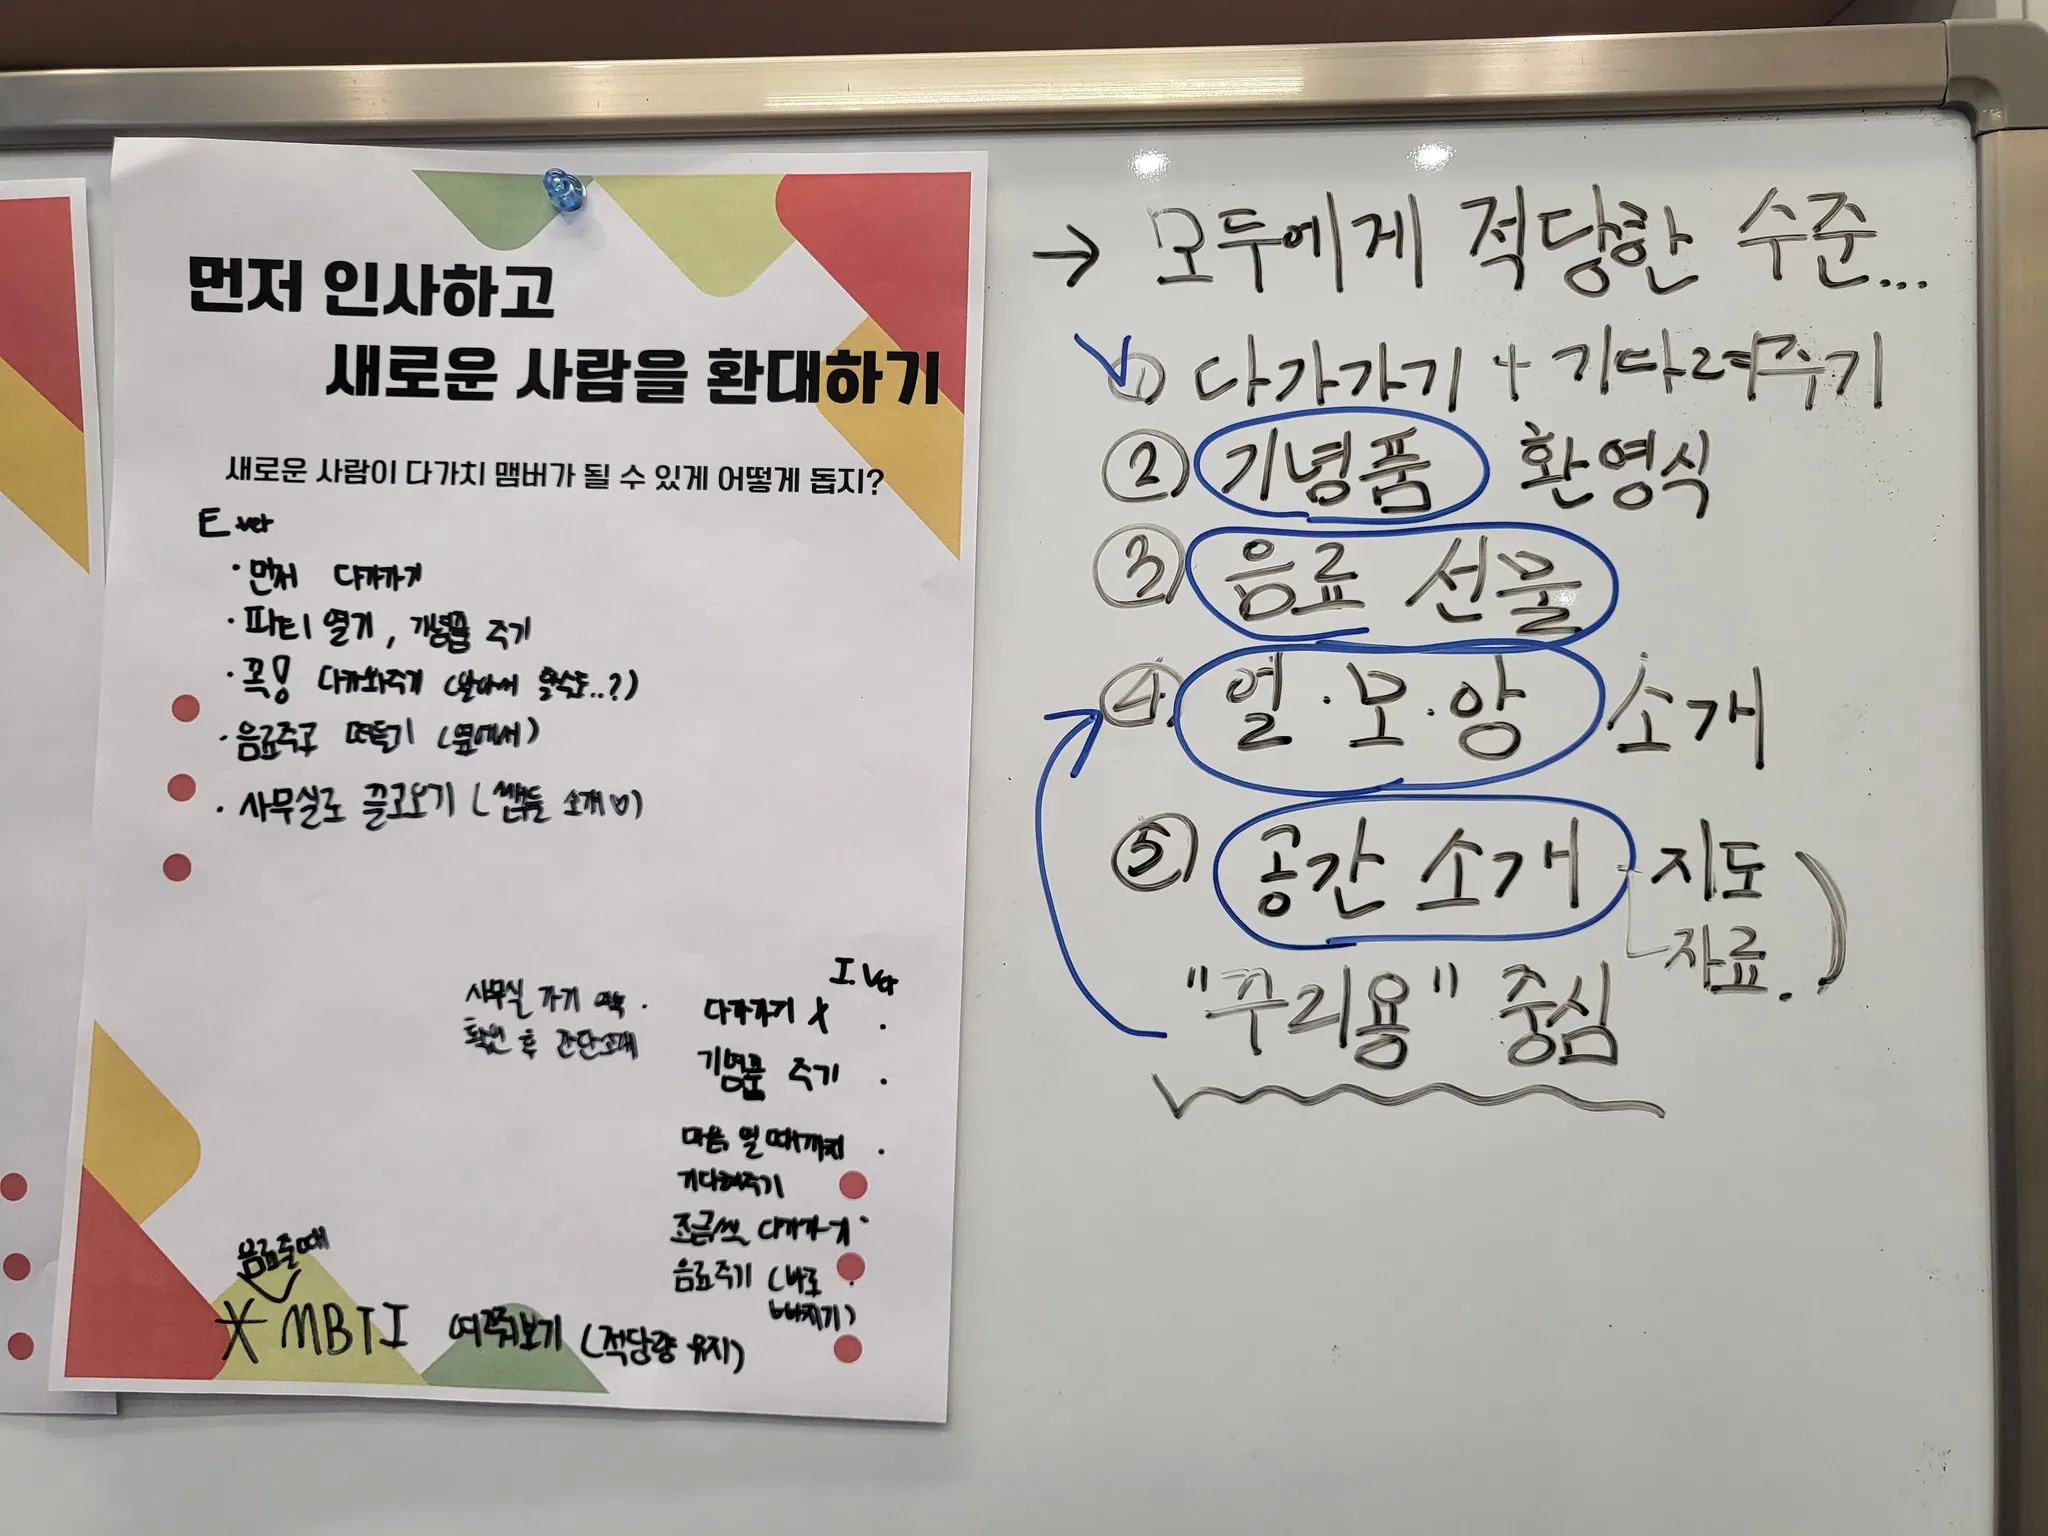 먼저 인사하고
새로운 사람을 환대하기
새로운 사람이 다가치 맴버가 될 수 있게 어떻게 돕지?
E ver
· 먼저 다가가기
· 파티 열기, 기념품 주기
· 꼭! 다가와주기 (낯가려서 올수도..?)
· 음료주고 떠들기 (옆에서)
· 사무실로 끌고오기 (쌤들 소개♡)
I. ver
다가가기 X ·
기념품 주기 ·
마음 열 때까지 ·
기다려주기
조금씩 다가가기 ·
음료주기 (바로 ·
빠지기)
사무실 가기 여부 ·
확인 후 간단소개
음료줄때
* MBTI 여쭤보기 (적당량 유지)
→ 모두에게 적당한 수준...
① 다가가기 + 기다려주기
② 기념품 환영식
③ 음료 선물
④ 열·모·앙 소개
⑤ 공간 소개 - 지도
자료.)
"꾸리용" 중심